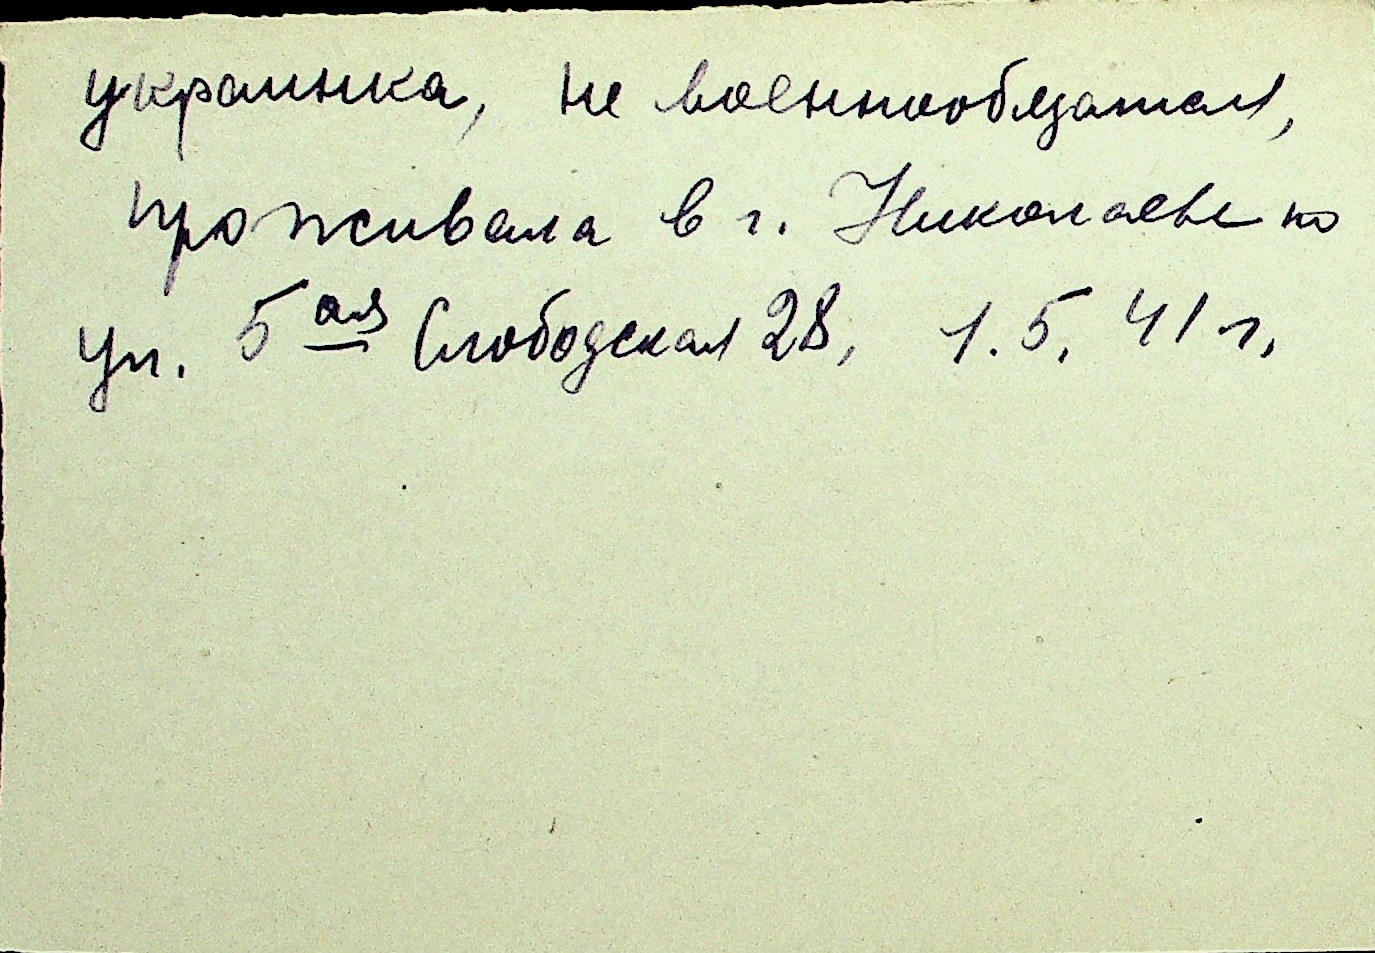 украинка, не военнообязаная,
проживала в г. Николаеве по
ул. 5ая Слободская 28, 1.5.41 г.